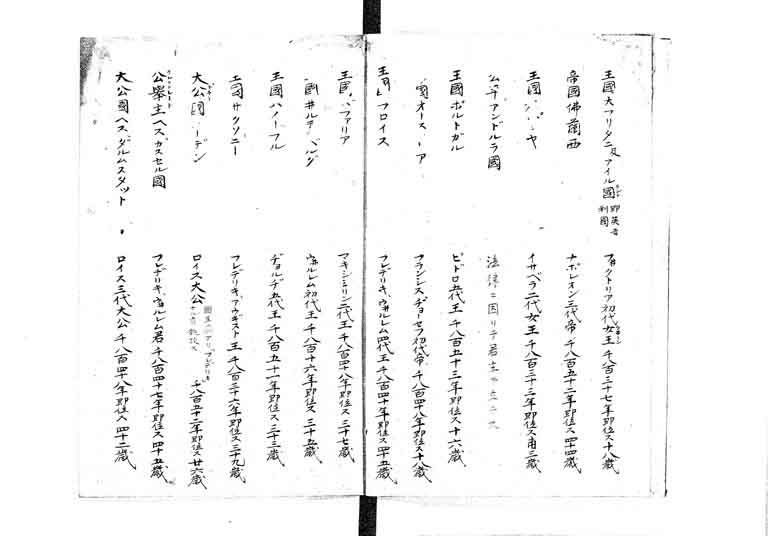 王國大フリタニ及アイル國 即英吉利國 フィクトリア初代女王 千八百三十七年即位ス十八歳
帝國佛蘭西 ナポレオン三代帝 千八百五十二年即位ス四十四歳
王國 イサベラ二代女王 千八百三十三年即位ス 三歳
アンドルラ國 法律ニ因リテ君主ヲ立テス
王國ポルトガル ピドロ五代王 千八百五十三年即位ス十六歳
オース ア フランシス、ヂョーセフ初代帝 千八百四十八年即位ス十八歳
王國 フロイス フレデリキ、ウィルレム四代王 千八百四十年即位ス四十五歳
王国 バファリア マキシミリン二代王 千八百四十八年即位ス三十七歳
國井ルテ バルグ ウィルレム初代王 千八百十六年即位ス三十五歳
王國ハノーフル ヂョルヂ五代王 千八百五十一年即位ス三十三歳
王国サクソニー フレデリキ、アウギスト王 千八百三十六年即位ス三十九歳
大公國 ーデン ロイス大公 千八百五十二年即位ス廿八歳
公擧主ヘス、カスセル國 フレデリキ、ウィルレム君 千八百四十七年即位ス四十五歳
大公國ヘス、ダルムスタット ロイス三代大公 千八百四十八年即位ス四十二歳